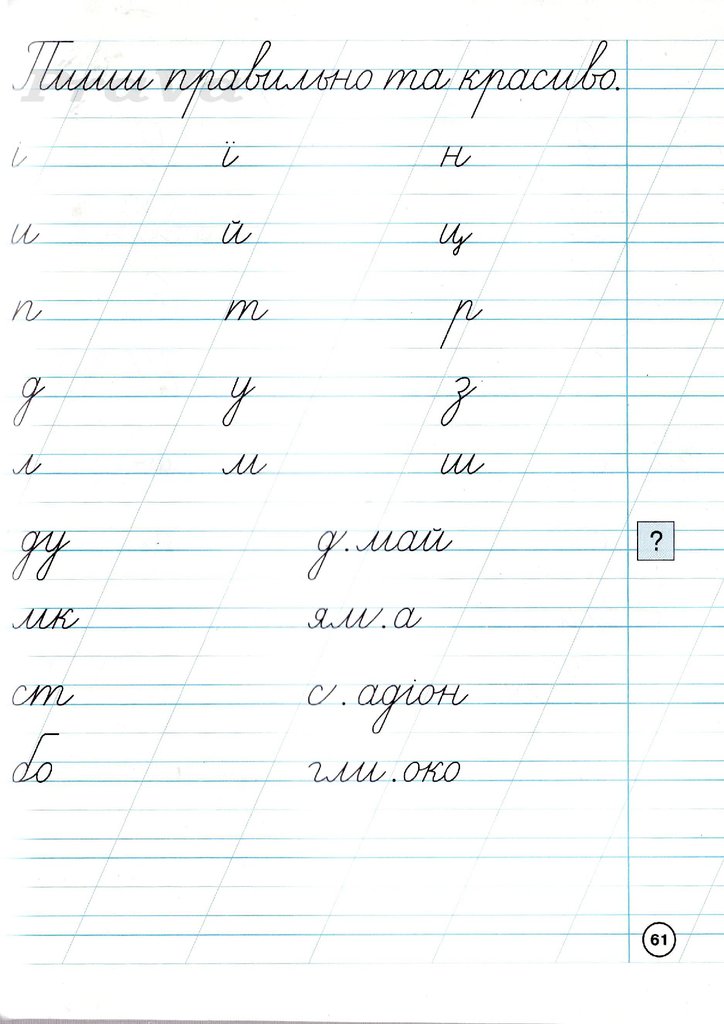 Пиши правильно та красиво.
і ї н
и й ц
п т р
д у з
л м ш
ду д.май ?
мк ям.а
ст с.адіон
бо гли.око
61